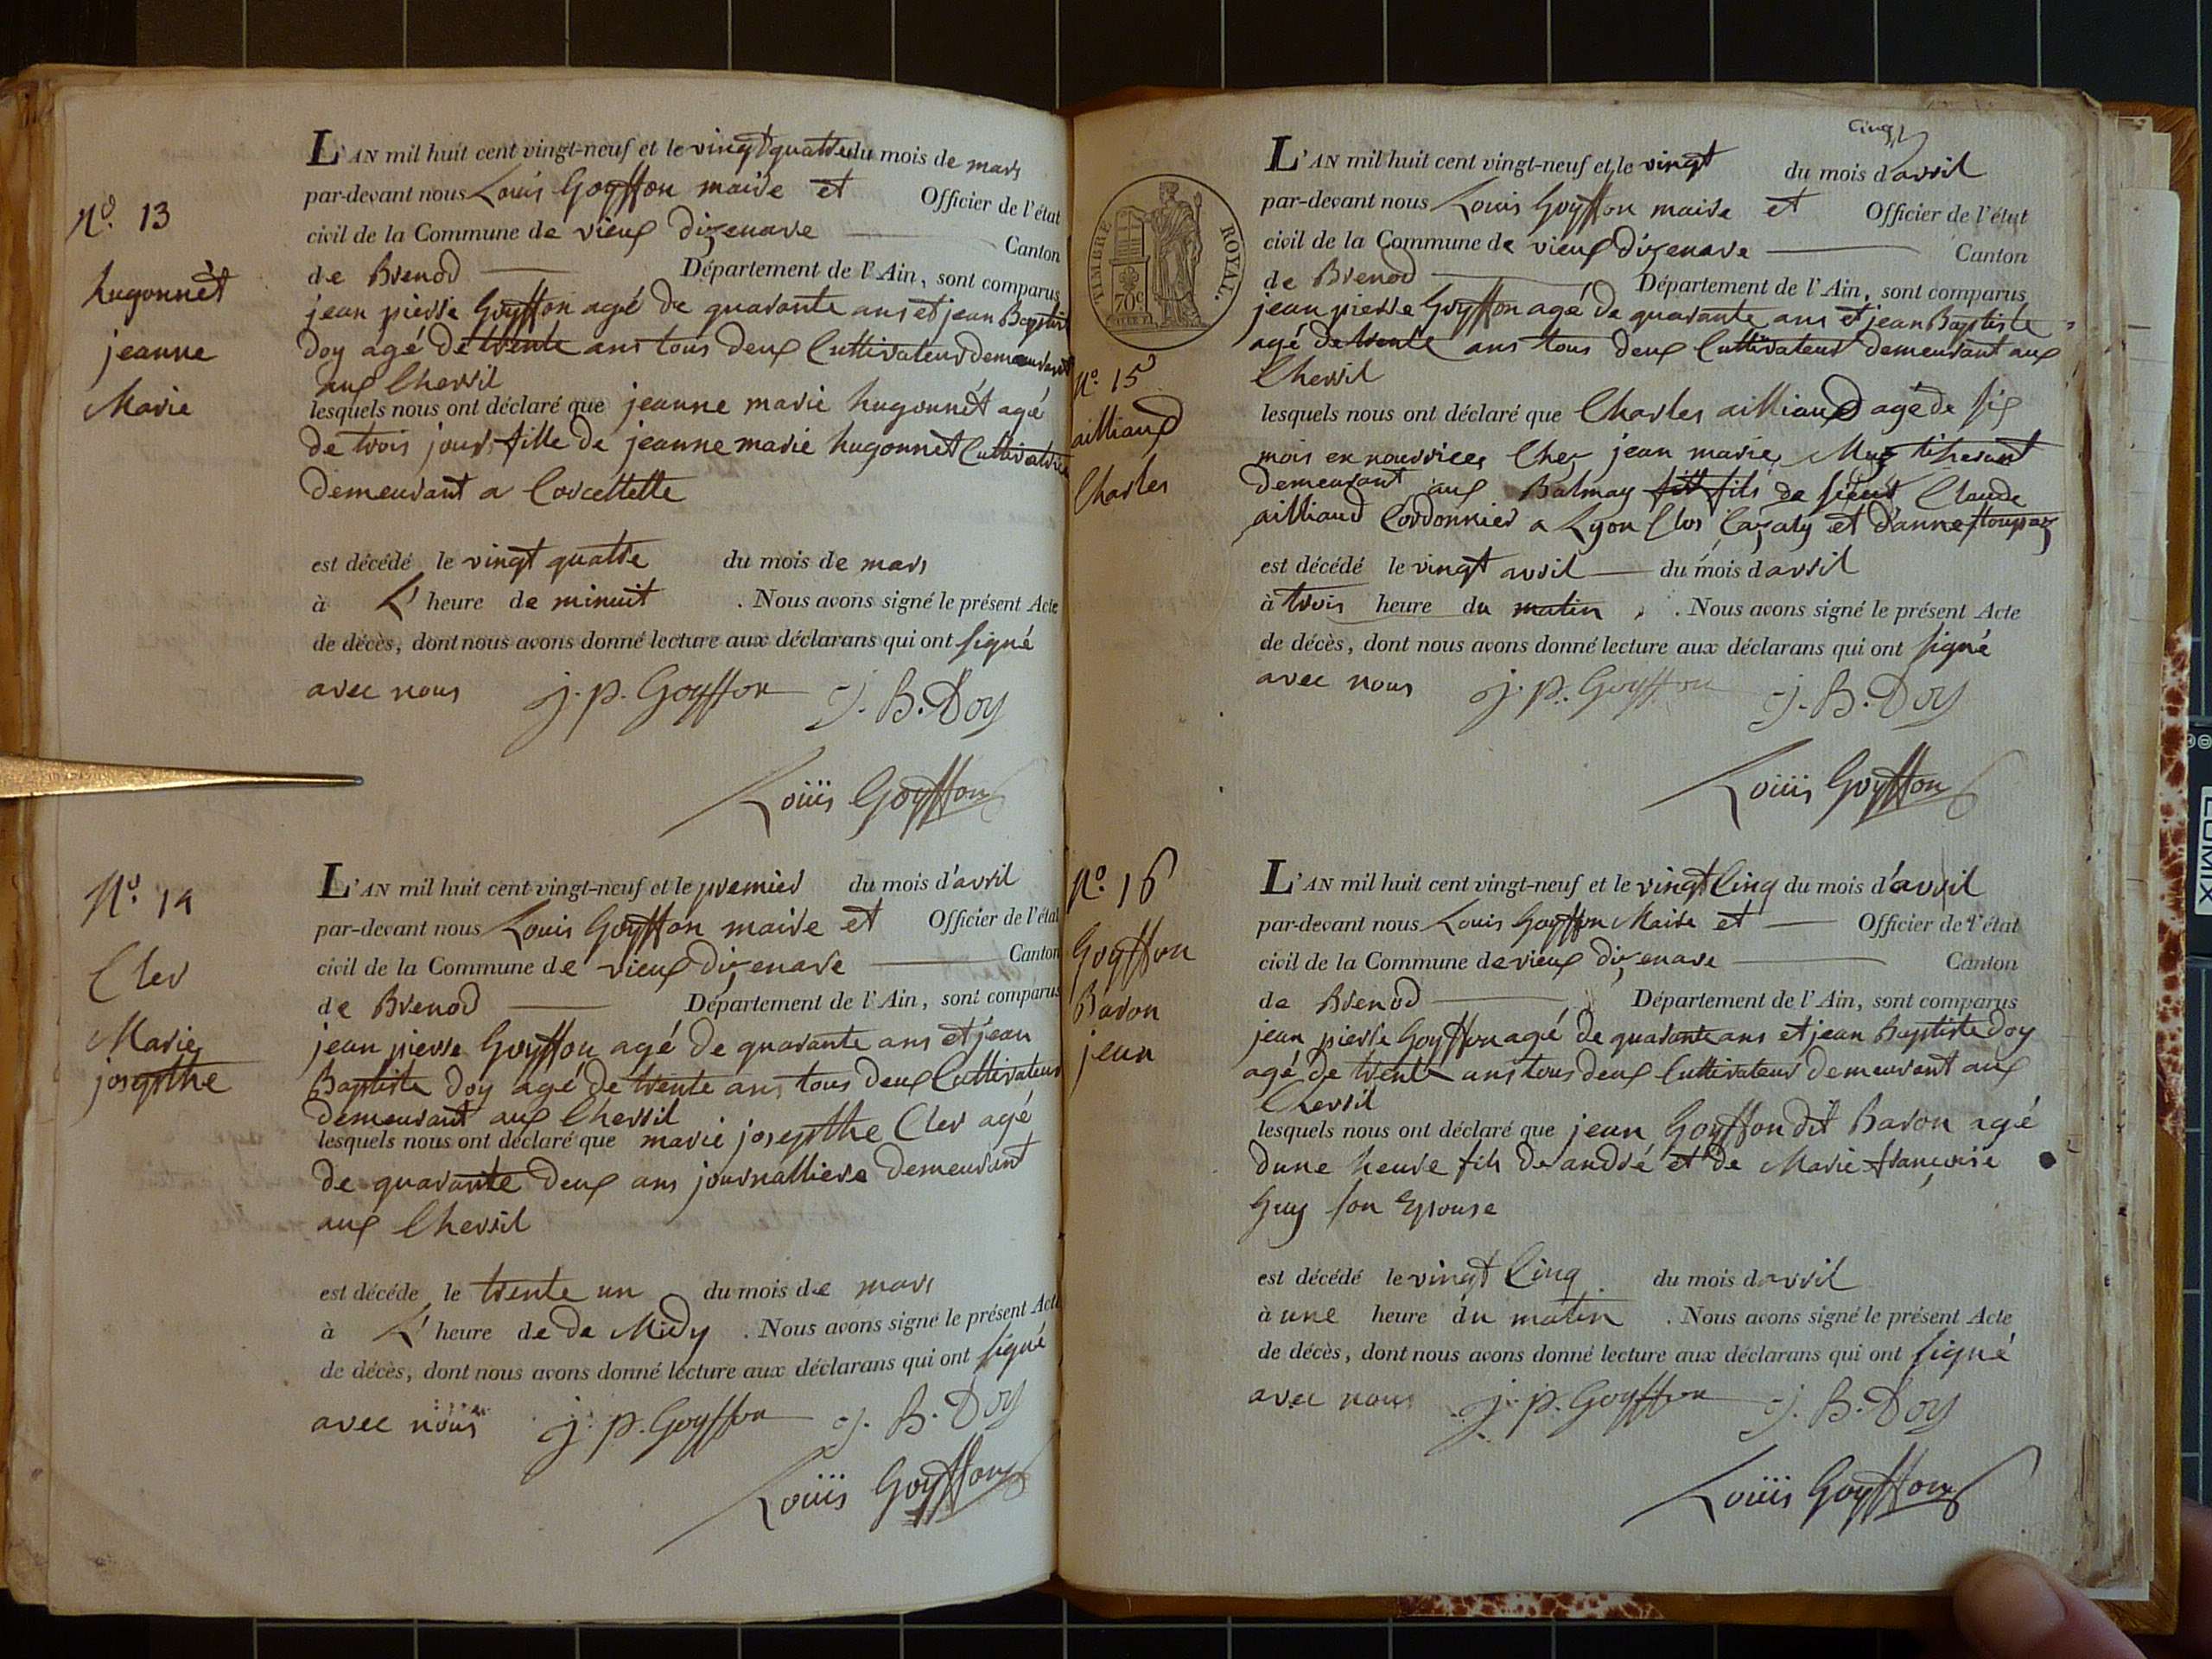 N.º 13
hugonnèt
jeanne
Marie
L'AN mil huit cent vingt-neuf et le vingt quatre du mois de mars
par-devant nous Louis Goyffon maire et Officier de l'état
civil de la Commune de vieux dizenave Canton
de Brenod Département de l'Ain, sont comparus
jean pierre Goyffon agé de quarante ans et jean Baptist
Doy agé de trente ans tous deux Cultivateurs demeurant
aux Chevril
lesquels nous ont déclaré que jeanne marie hugonnèt agé
de trois jours fille de jeanne marie hugonnèt Cultivatrice
demeurant a Corcellette
est décédé le vingt quatre du mois de mars
à L' heure de minuit . Nous avons signé le présent Acte
de décès, dont nous avons donné lecture aux déclarans qui ont signé
avec nous j. p. Goyffon J. B. Doy
Louis Goyffon
N.º 14
Cler
Marie
josepthe
L'AN mil huit cent vingt-neuf et le premier du mois d'avril
par-devant nous Louis Goyffon maire et Officier de l'état
civil de la Commune de vieux dizenave Canton
de Brenod Département de l'Ain, sont comparus
jean pierre Goyffon agé de quarante ans et jean
Baptiste Doy agé de trente ans tous deux Cultivateur
demeurant aux Chevril
lesquels nous ont déclaré que marie josepthe Cler agé
de quarante deux ans journalliere demeurant
aux Chevril
est décédé le trente un du mois de mars
à L' heure de de Midy . Nous avons signé le présent Acte
de décès, dont nous avons donné lecture aux déclarans qui ont signé
avec nous j. p. Goyffon J. B. Doy
Louis Goyffon
TIMBRE ROYAL.
70c
N.º 15
ailliaud
Charles
cinq
L'AN mil huit cent vingt-neuf et le vingt du mois d'avril
par-devant nous Louis Goyffon maire et Officier de l'état
civil de la Commune de vieux dizenave Canton
de Brenod Département de l'Ain, sont comparus
jean pierre Goyffon agé de quarante ans et jean Baptiste
agé de trente ans tous deux Cultivateur demeurant aux
Chevril
lesquels nous ont déclaré que Charles ailliaud agé de six
mois en nourrice Chez jean marie tiherant
demeurant aux Balmay fils de sieur Claude
ailliaud Cordonnier a Lyon Clos Cazaty et d'anne
est décédé le vingt avril du mois d'avril
à trois heure du matin . Nous avons signé le présent Acte
de décès, dont nous avons donné lecture aux déclarans qui ont signé
avec nous j. p. Goyffon J. B. Doy
Louis Goyffon
N.º 16
Goyffon
Baron
jean
L'AN mil huit cent vingt-neuf et le vingt Cinq du mois d'avril
par-devant nous Louis Goyffon Maire et Officier de l'état
civil de la Commune de vieux dizenave Canton
de Brenod Département de l'Ain, sont comparus
jean pierre Goyffon agé de quarante ans et jean Baptiste Doy
agé de trente ans tous deux Cultivateur demeurant aux
Chevril
lesquels nous ont déclaré que jean Goyffon dit Baron agé
dune heure fils de andré et de Marie françoise
Guy son Epouse
est décédé le vingt Cinq du mois d'avril
à une heure du matin . Nous avons signé le présent Acte
de décès, dont nous avons donné lecture aux déclarans qui ont signé
avec nous j. p. Goyffon J. B. Doy
Louis Goyffon
LUMIX